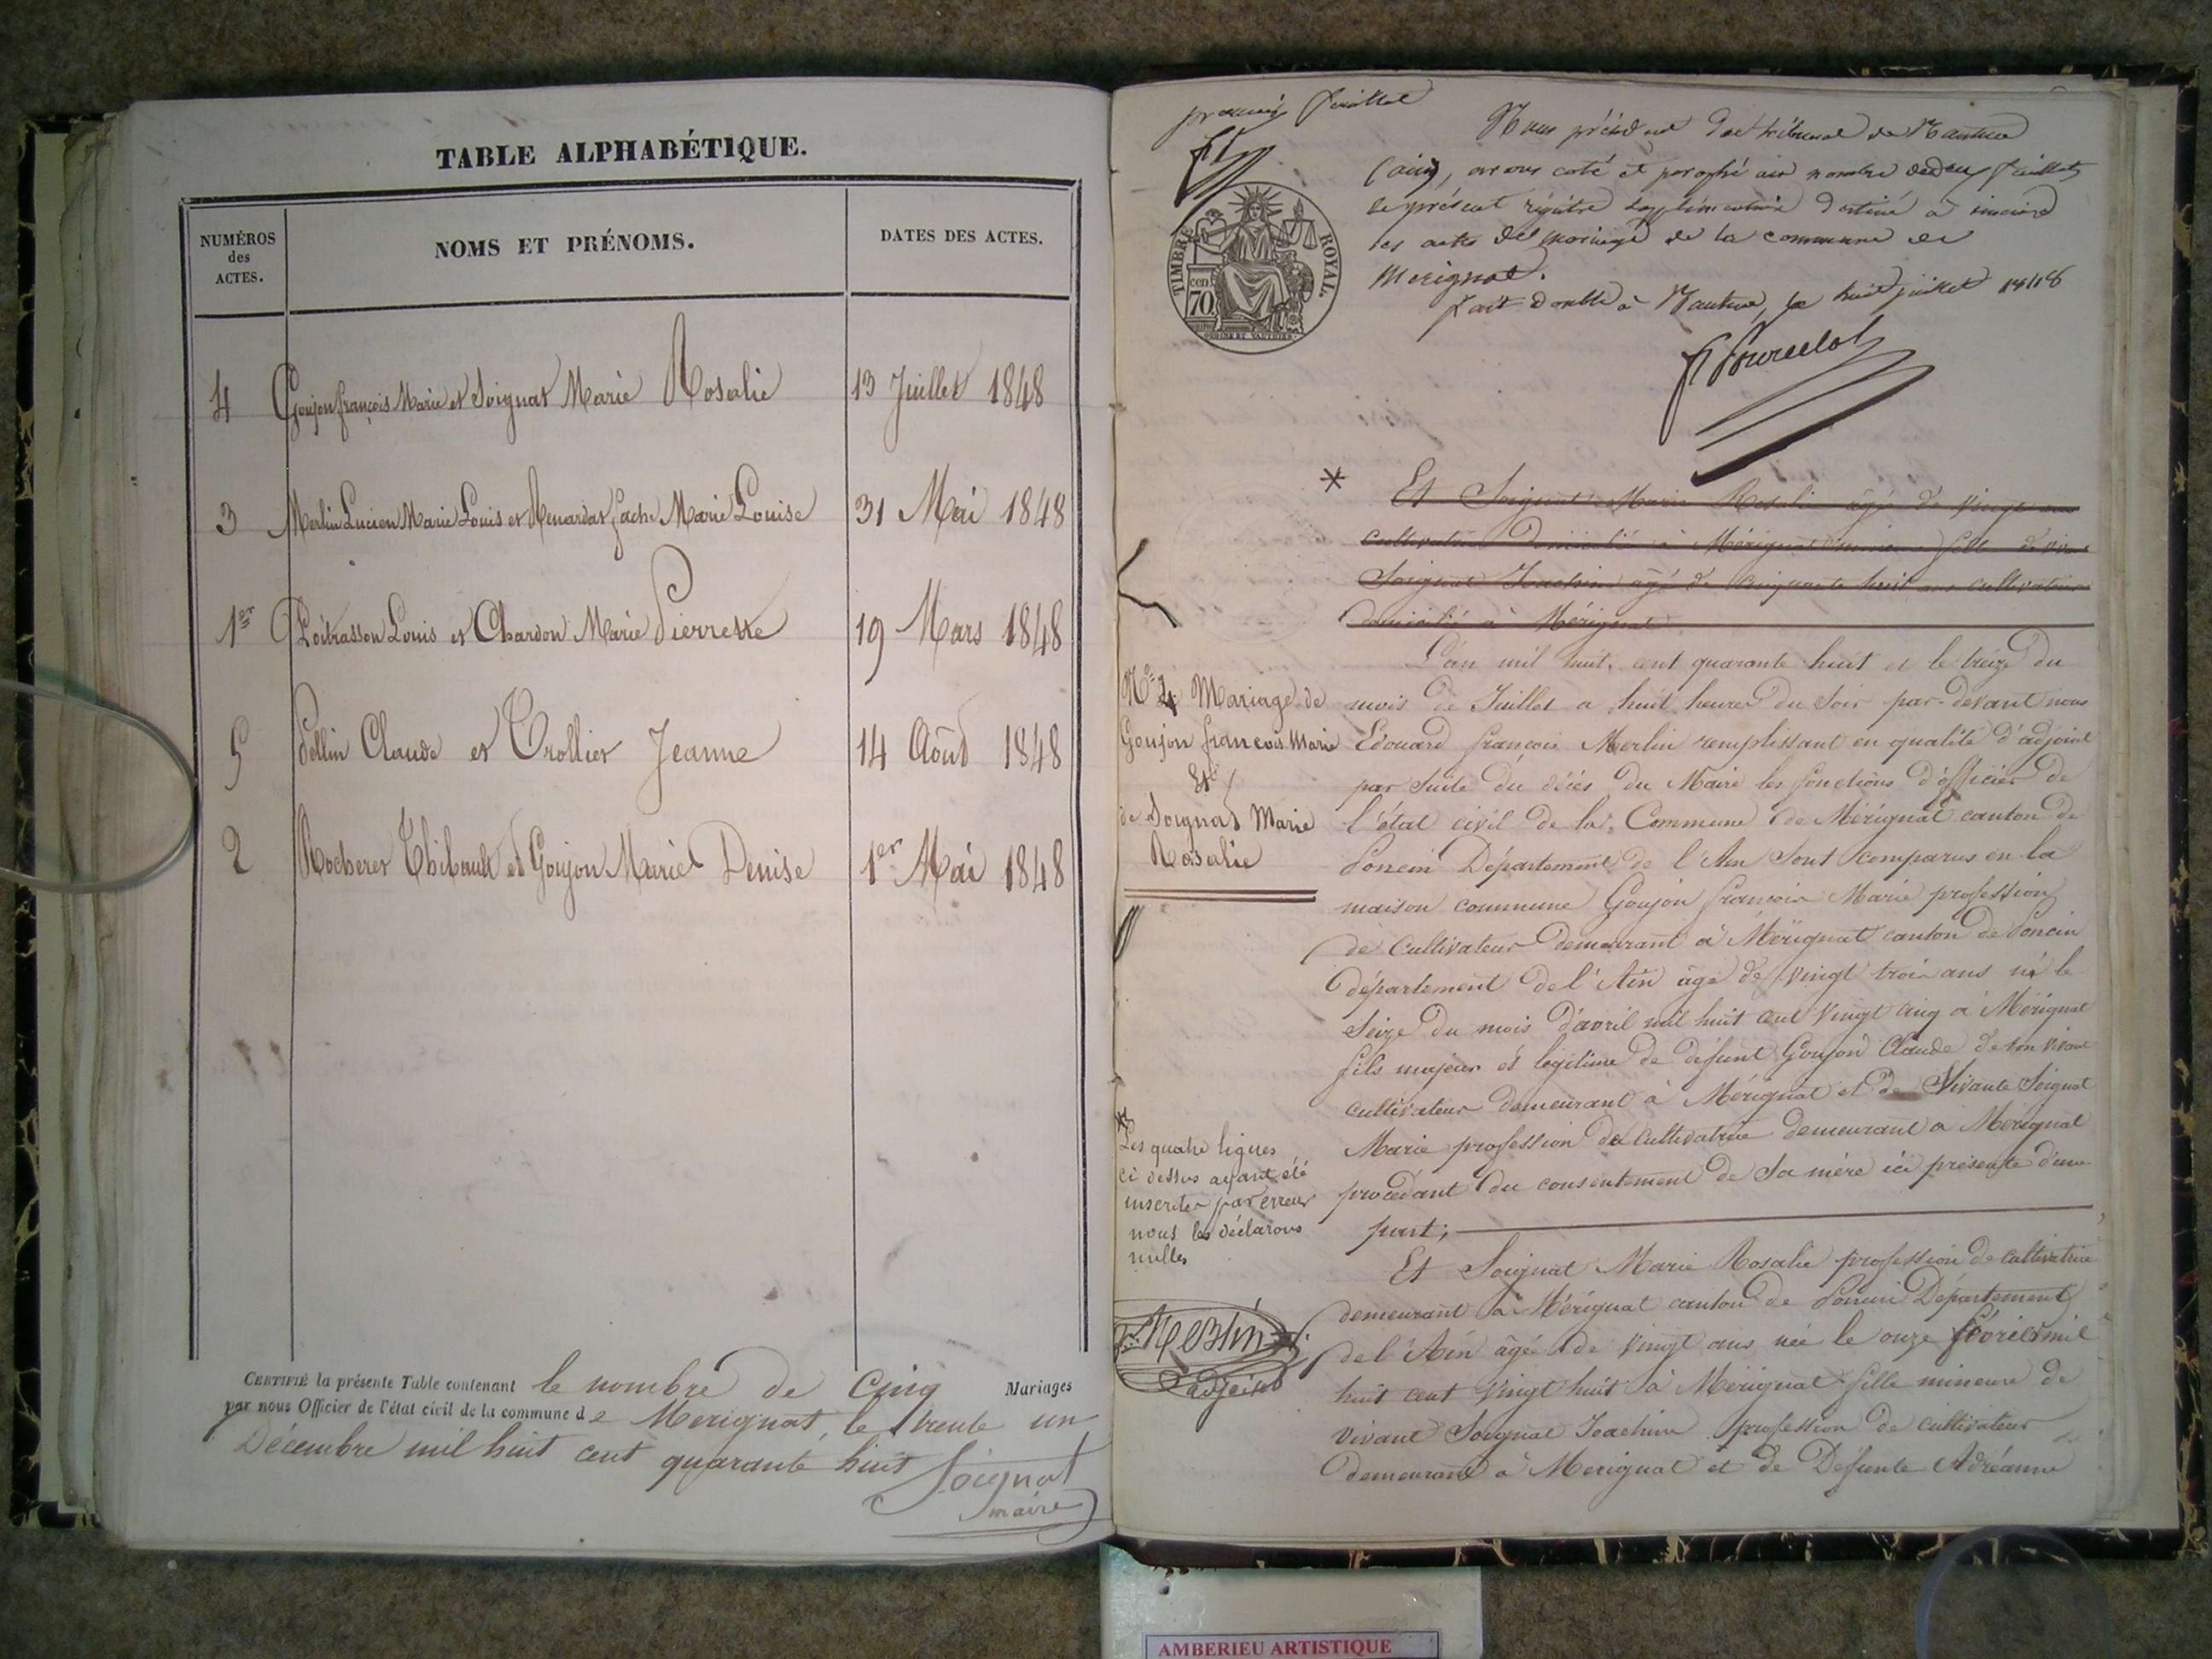 TABLE ALPHABÉTIQUE.
NUMÉROS
des
ACTES.
NOMS ET PRÉNOMS.
DATES DES ACTES.
4 Goujon françois Marie et Soignat Marie Rosalie 13 Juillet 1848
3 Merlin Lucien Marie Louis et Marie Louise 31 Mai 1848
1er Poitrasson Louis et Chardon Marie Pierrette 19 Mars 1848
5 Pellin Claude et Trollier Jeanne 14 Août 1848
2 Rocherer Thibault et Goujon Marie Denise 1er Mai 1848
CERTIFIÉ la présente Table contenant le nombre de Cinq Mariages
par nous Officier de l'état civil de la commune de Merignat, le trente un
Décembre mil huit cent quarante huit
Soignat
maire
premier feuillet
Nous président du tribunal de Nantua
(ain), avons coté et paraphé au nombre de deux feuillets
le présent régistre supplémentaire destiné à inscrire
les actes de mariage de la commune de
Merignat.
fait double à Nantua, le huit juillet 1848
TIMBRE ROYAL.
cen.
70.
*
Et Soignat Marie Rosalie âgé de Vingt ans
cultivatrice Domicilié à Mérignat fille de vivant
Soignat Joachim âgé de Cinquante huit ans cultivateur
domicilié à Mérignat
L'an mil huit cent quarante huit et le treize du
mois de Juillet a huit heures du Soir par-devant nous
Edouard françois Merlin remplissant en qualité d'adjoint
par Suite du décès du Maire les fonctions d'officier de
l'état civil de la Commune de Mérignat canton de
Poncin Département de l'Ain Sont comparus en la
maison commune Goujon françois Marie profession
de Cultivateur demeurant à Mérignat canton de Poncin
département de l'Ain âgé de Vingt trois ans né le
Seize du mois d'avril mil huit cent Vingt cinq à Mérignat
fils majeur et légitime de défunt Goujon Claude de son vivant
cultivateur demeurant à Mérignat et de Vivante Soignat
Marie profession de cultivatrice demeurant à Merignat
procédant du consentement de Sa mère ici présente d'une
part;
Et Soignat Marie Rosalie profession de cultivatrice
demeurant à Mérignat canton de Poncin Département
de l'Ain âgée de Vingt ans née le onze février mil
huit cent Vingt huit à Mérignat fille mineure de
vivant Soignat Joachim profession de cultivateur
demeurant à Merignat et de Défunte
No 4 Mariage de
Goujon françois Marie
Et
de Soignat Marie
Rosalie
*
Les quatre lignes
ci dessus ayant été
inscrites par erreur
nous les déclarons
nulles
Merlin
adjoint
AMBERIEU ARTISTIQUE